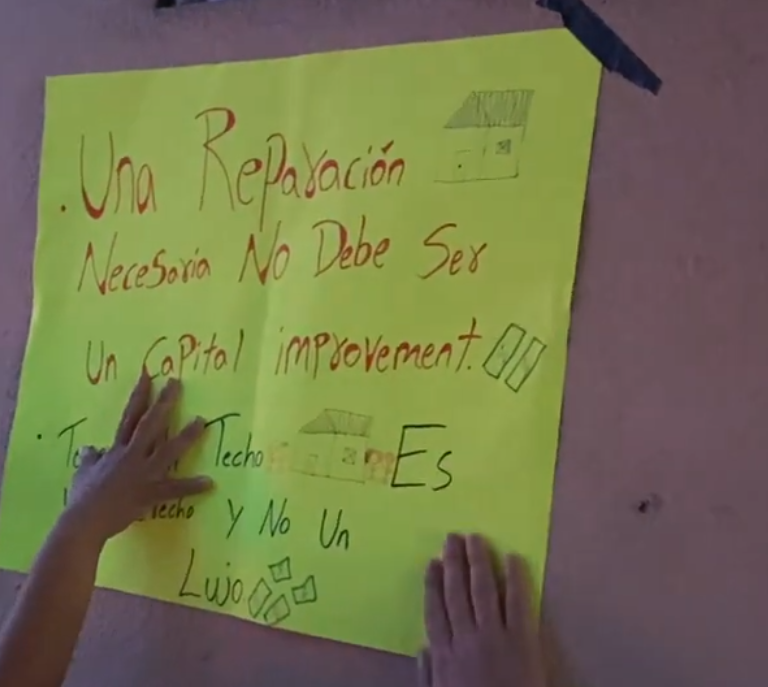 . Una Reparación
Necesaria No Debe Ser
Un Capital improvement.
. Techo Es
Y No Un
Lujo